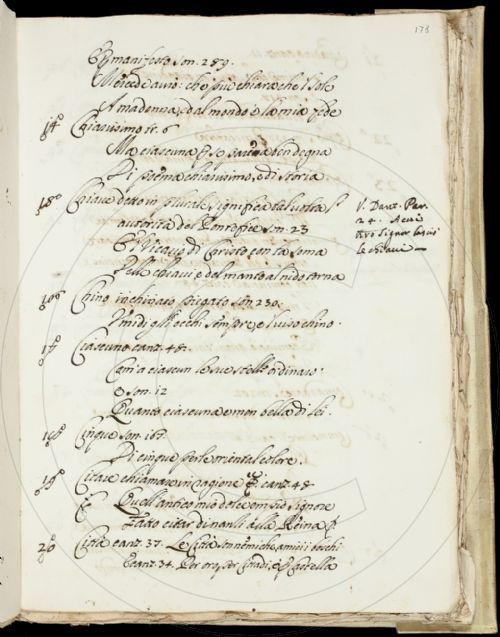 178
manifesto son. 289.
Mercede avrò: che più chiara che 'l sole
A madonna, ed al mondo è la mia fede
14º Chiarissimo tr. 6
Ma ciascuna per se saria ben degna
Di poema chiarissimo, e di storia
15º Chiave detto in plurale significa talvolta l'
autorità del Pontefice son. 23
E 'l Vicario di Christo con la soma
Delle chiavi e del manto al nido torna
V. Dant. Par.
24. A cui
nostro Signor lasciò
le chiavi
16º Chino inchinato piegato son 230.
Umidi gli occhi sempre, e 'l viso chino.
17º Ciascuno canz. 48.
Can a ciascun le sue stelle ordinaro.
son. 12
Quanto ciascuna è men bella di lei.
18º Cinque son. 167.
Di cinque perle oriental colore.
19º Citare chiamare in ragione canz. 48
Quell'antico mio dolce empio Signore
Fatto citar dinanzi a la Reina
20º Città canz. 37. Le Città son nemiche, amici i boschi
canz. 34. Per oro, per Cittadi, o per Castella